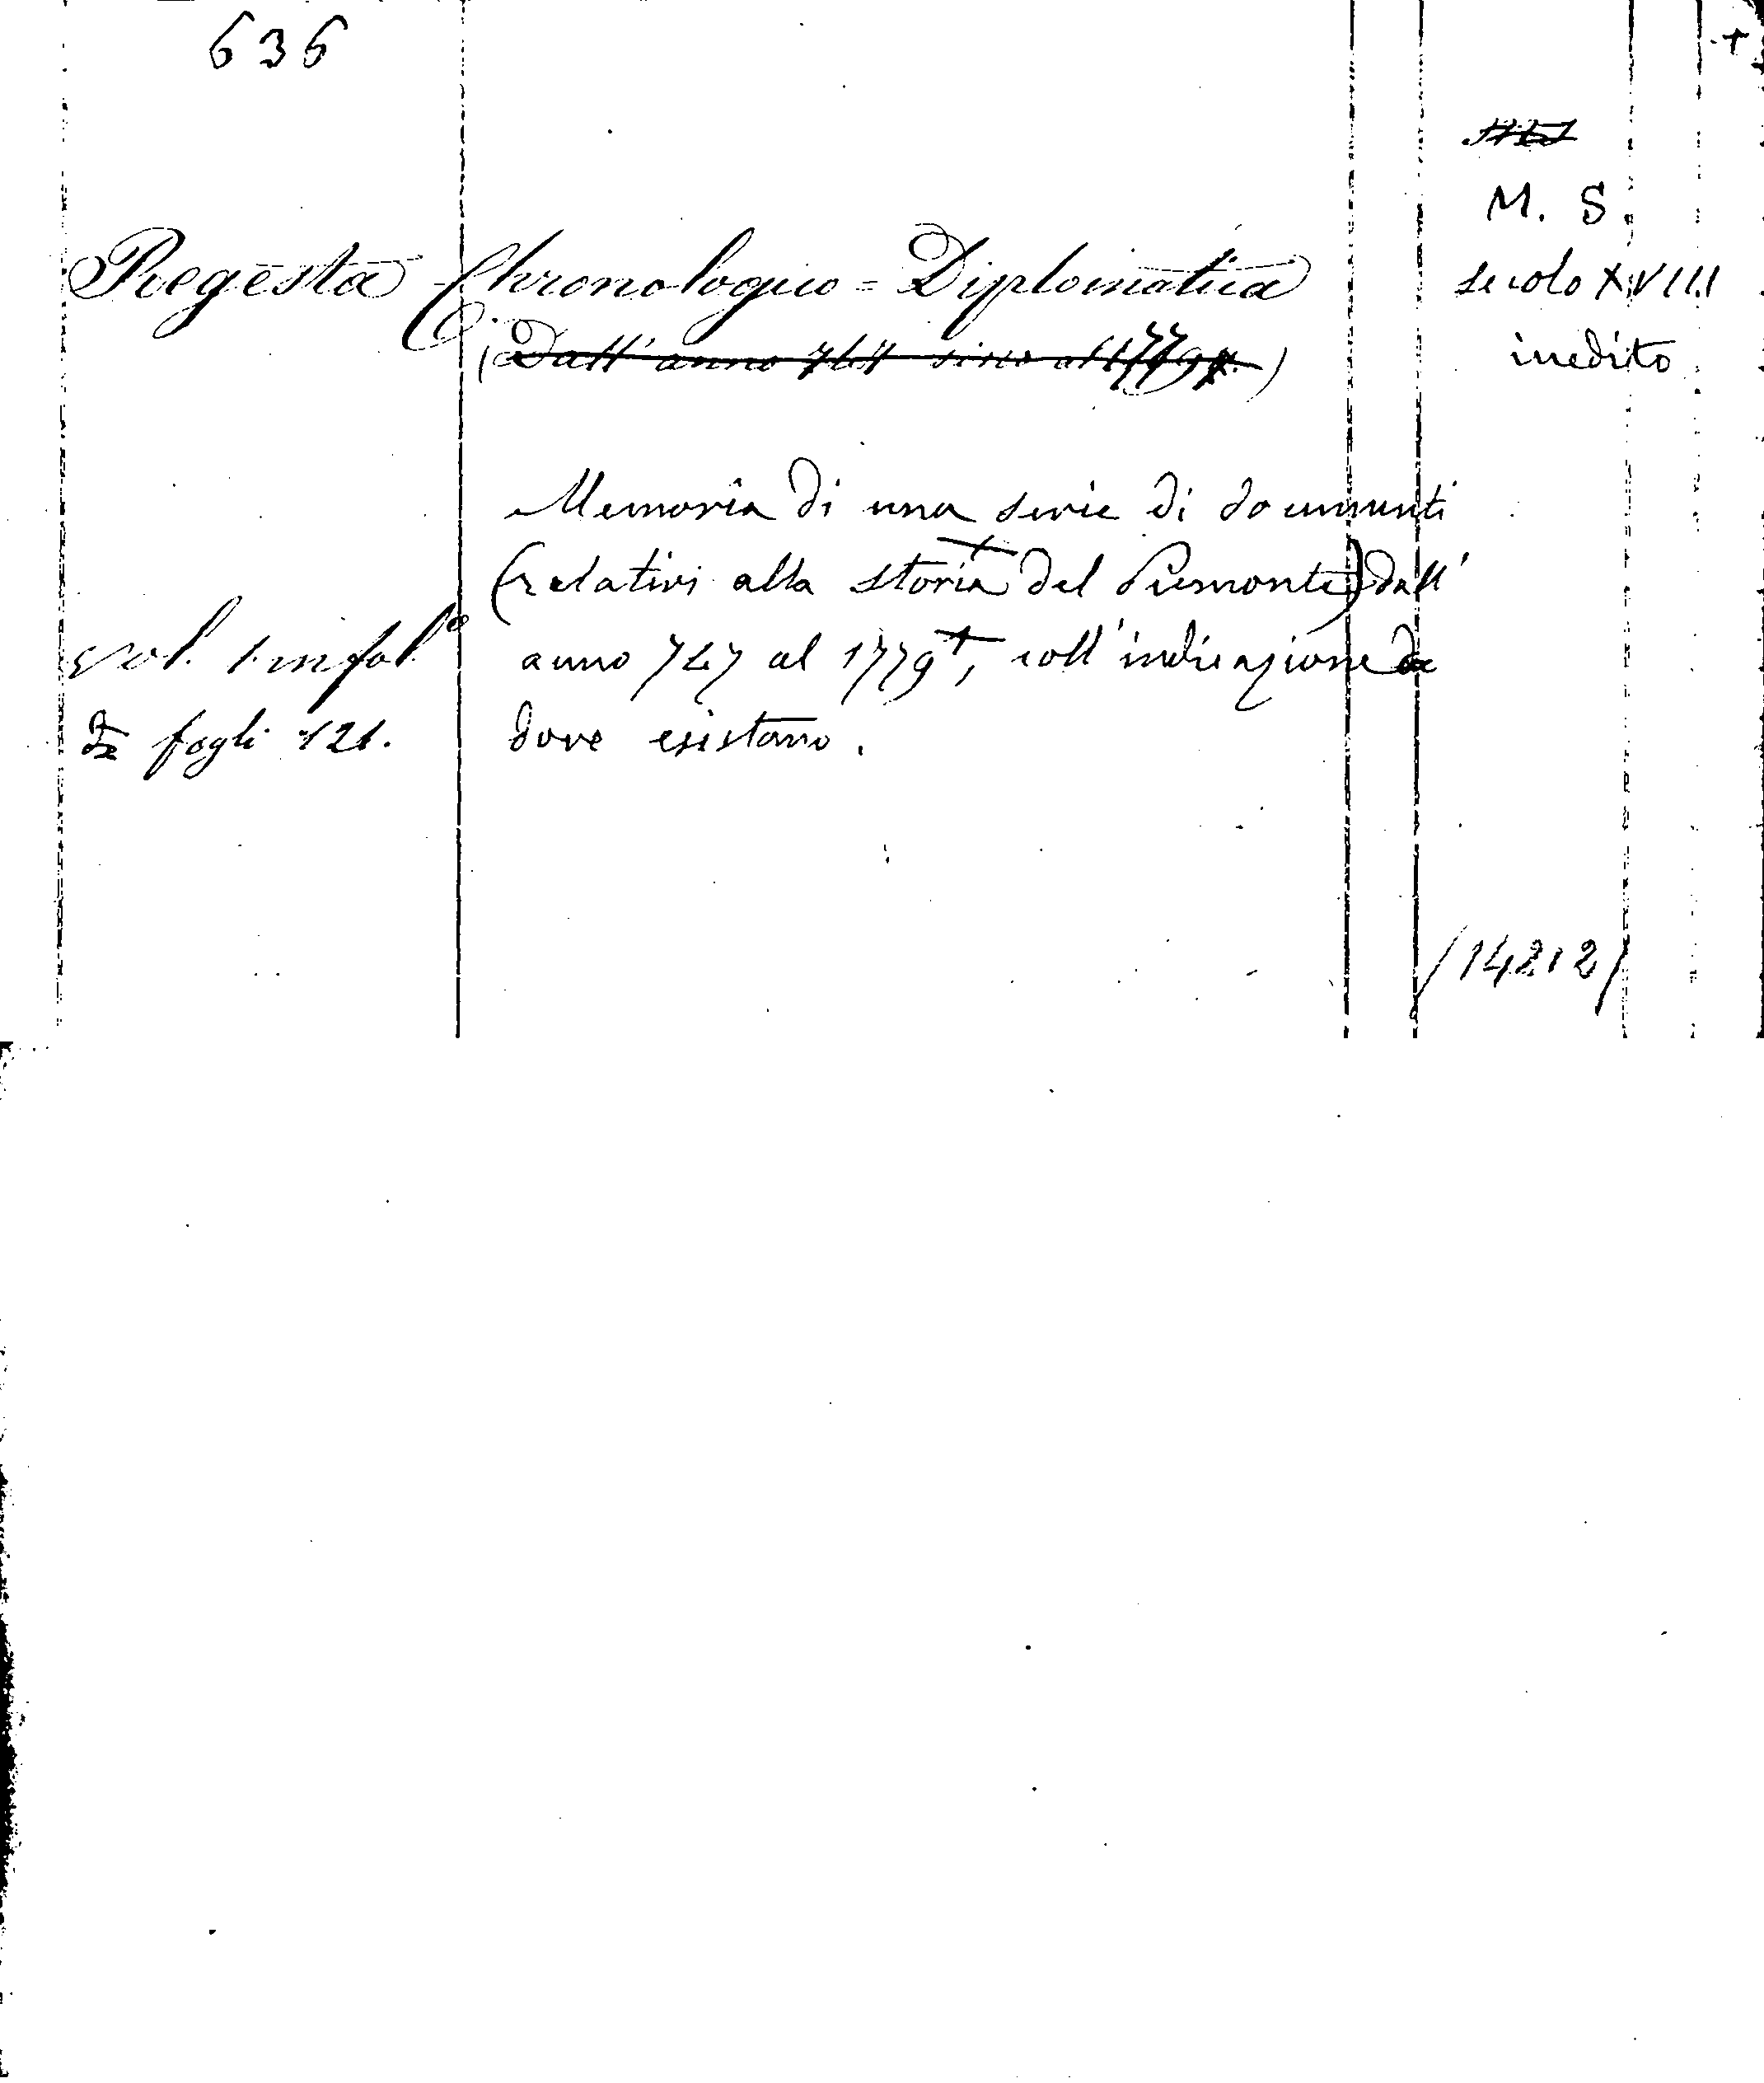 636
M. S.
secolo XVIII
inedito
Regesta Chronologico=Diplomatica
(Dall'anno sino al 1779.)
Memoria di una serie di documenti
(relativi alla storia del Piemonte) dall'
anno 747 al 1779, coll'indicazione
dove esistano.
vol. 1 in fol.º
di fogli 121.
/14212/